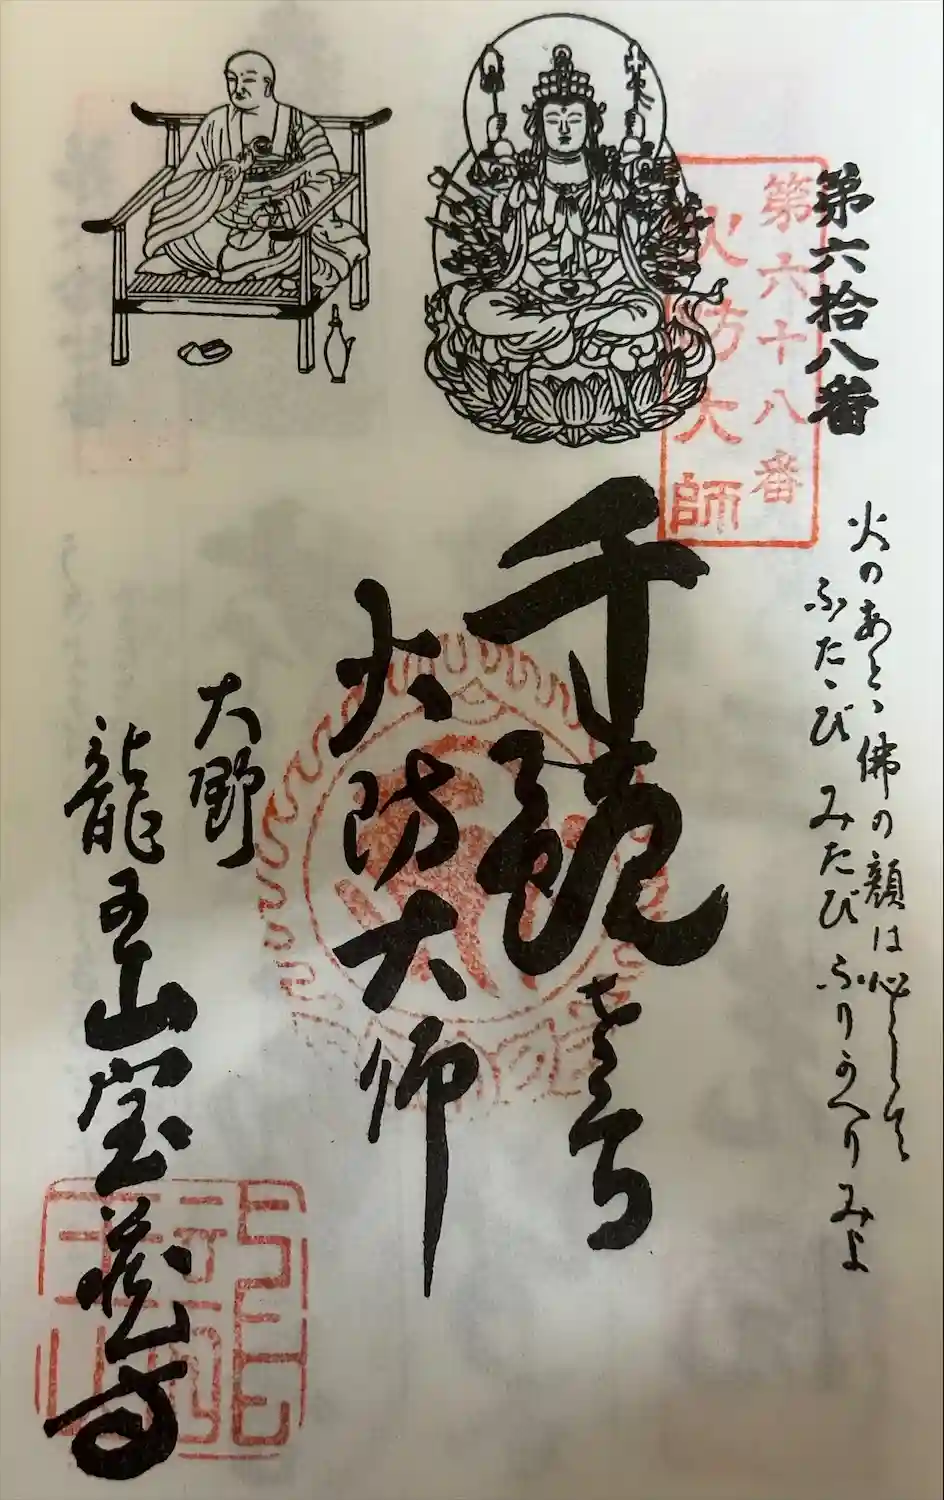 第六拾八番
第六十八番
火防大師
火のあとゝ佛の顔は心して
ふたゝび みたび ふりかへりみよ
千観世音
火防大師
大野
龍王山宝蔵寺